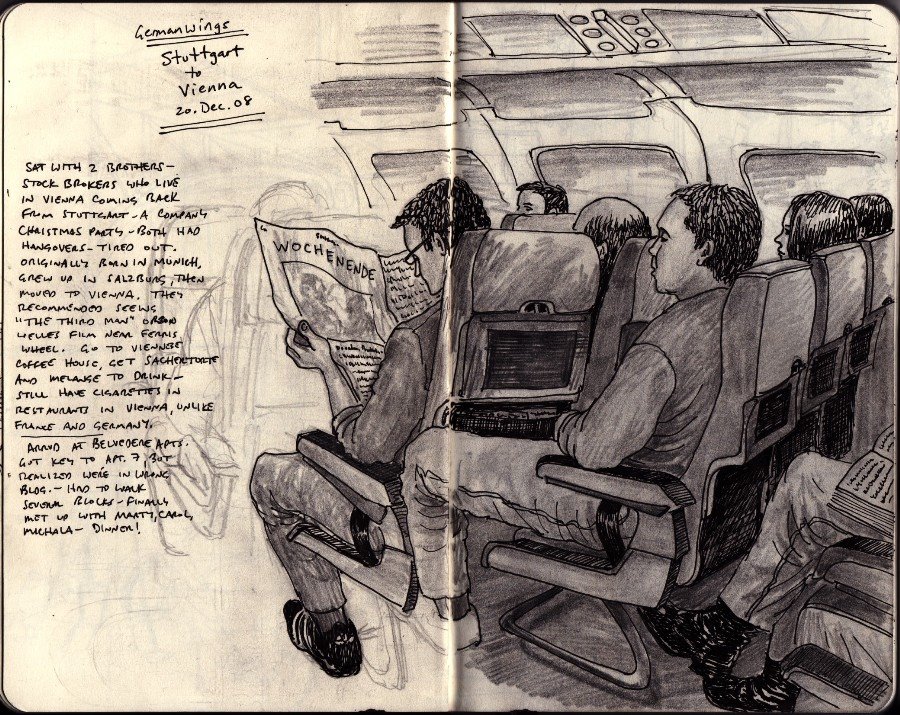 GermanWings
Stuttgart
to
Vienna
20.Dec.08
SAT WITH 2 BROTHERS–
STOCK BROKERS WHO LIVE
IN VIENNA COMING BACK
FROM STUTTGART – A COMPANY
CHRISTMAS PARTY – BOTH HAD
HANGOVERS – TIRED OUT.
ORIGINALLY BORN IN MUNICH,
GREW UP IN SALZBURG, THEN
MOVED TO VIENNA. THEY
RECOMMENDED SEEING
"THE THIRD MAN" ORSON
WELLES FILM NEAR FERRIS
WHEEL. GO TO VIENNESE
COFFEE HOUSE, GET SACHERTORTE
AND MELANGE TO DRINK –
STILL HAVE CIGARETTES IN
RESTAURANTS IN VIENNA, UNLIKE
FRANCE AND GERMANY.
ARRVD AT BELVEDERE APTS.
GOT KEY TO APT. 7, BUT
REALIZED WERE IN WRONG
BLDG. – HAD TO WALK
SEVERAL BLOCKS – FINALLY
MET UP WITH MARTY, CAROL,
MICHALA – DINNER!
WOCHENENDE